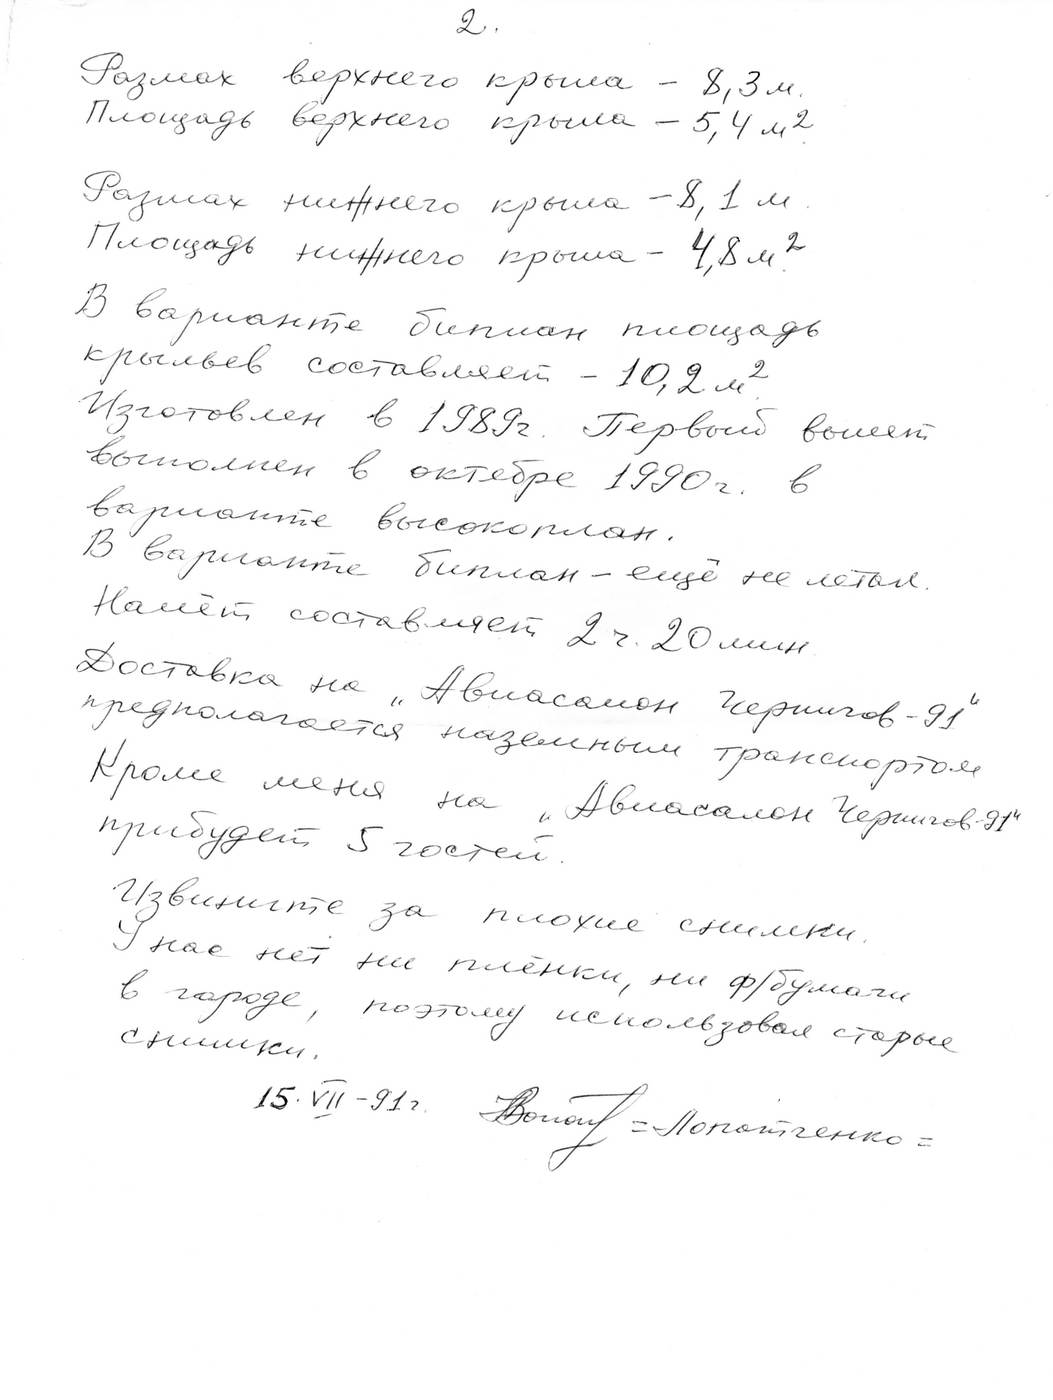 2.
Размах верхнего крыла – 8,3 м.
Площадь верхнего крыла – 5,4 м².
Размах нижнего крыла – 8,1 м.
Площадь нижнего крыла – 4,8 м².
В варианте биплан площадь
крыльев составляет – 10,2 м².
Изготовлен в 1989г. Первый вылет
выполнен в октябре 1990г. в
варианте высокоплан.
В варианте биплан – ещё не летал.
Налёт составляет 2 ч. 20 мин
Доставка на „Авиасалон Чернигов-91"
предполагается наземным транспортом
Кроме меня на „Авиасалон Чернигов-91"
прибудет 5 гостей.
Извините за плохие снимки.
У нас нет ни плёнки, ни ф/бумаги
в городе, поэтому использовал старые
снимки.
15.VII-91г. = Лопатченко =